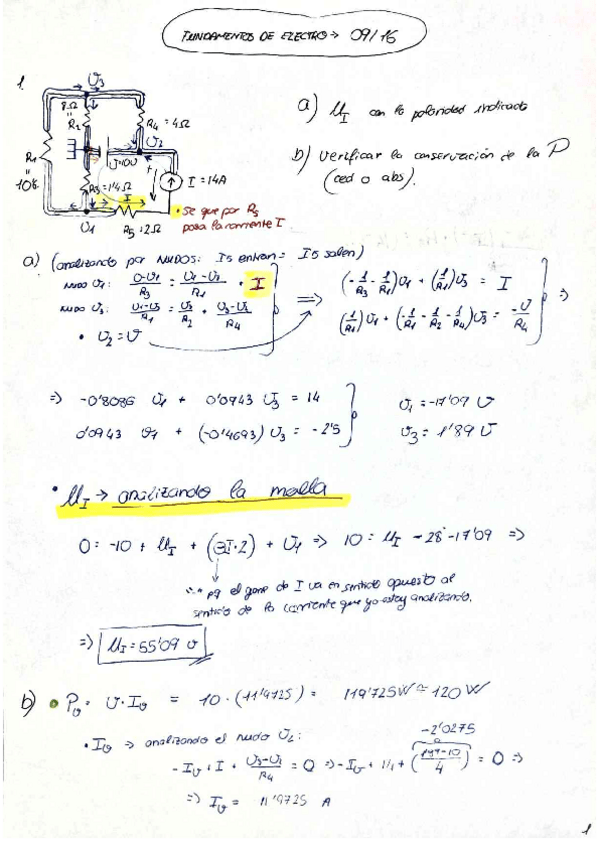 FUNDAMENTOS DE ELECTRO → 09/16
1.
U3
8Ω
R2
R4 = 4Ω
U2
R1
U=10V
I = 14A
R3=1'4Ω
I
U1
R5 = 2Ω
a) UI con la polaridad indicada
b) Verificar la conservación de la P
(ced o abs).
• Se que por R5
pasa la corriente I.
a) (analizando por NUDOS: Is entran = Is salen)
NUDO U1: (0-U1)/R3 = (U1-U3)/R1 + I
NUDO U3: (U1-U3)/R1 = U3/R2 + (U3-U2)/R4
• U2 = U
⇒ (-1/R3 - 1/R1)U1 + (1/R1)U3 = I
(1/R1)U1 + (-1/R1 - 1/R2 - 1/R4)U3 = -U/R4 ⇒
⇒ -0'8086 U1 + 0'0943 U3 = 14
0'0943 U1 + (-0'4693) U3 = -2'5
U1 = -17'09 V
U3 = 1'89 V
• UI → analizando la malla
0 = -10 + UI + (-I·2) + U1 ⇒ 10 = UI - 28 - 17'09 ⇒
pq el gene de I va en sentido opuesto al
sentido de la corriente que yo estoy analizando.
⇒ UI = 55'09 V
b) • PU = U·IU = 10·(11'9725) = 119'725W ≈ 120 W
• IU → analizando el nudo U2:
-2'0275
-IU + I + (U3-U2)/R4 = 0 ⇒ -IU + 14 + ((1'89-10)/4) = 0 ⇒
⇒ IU = 11'9725 A
1